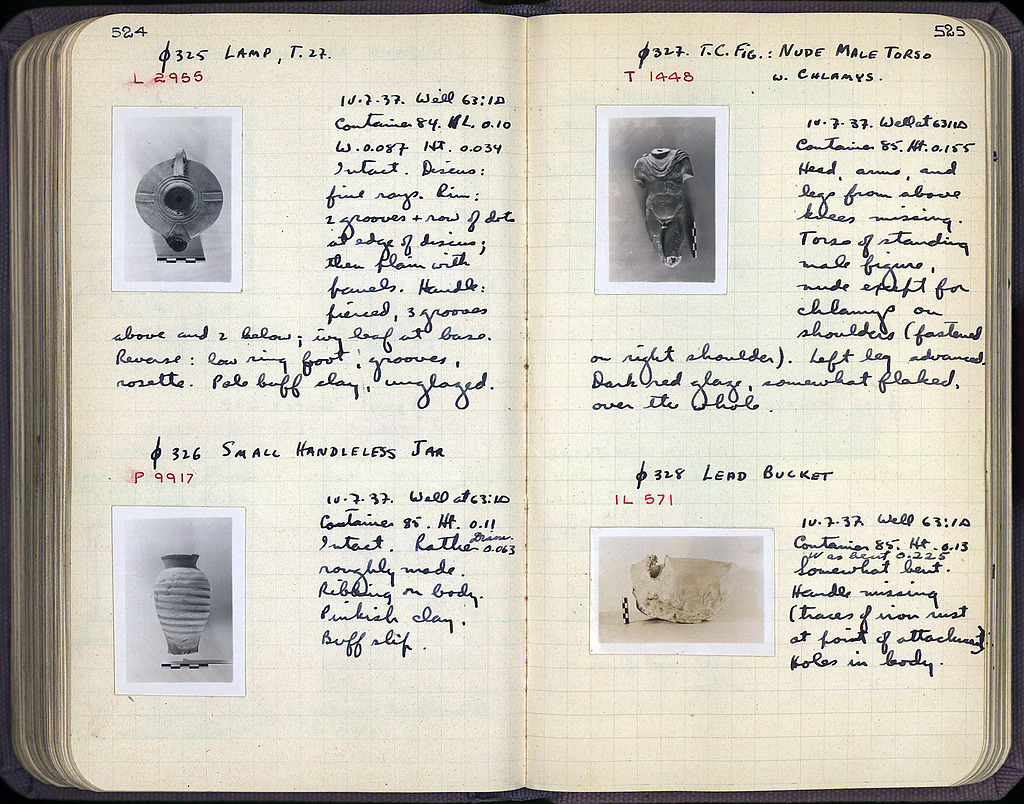 524
ϕ325 LAMP, T. 27.
L 2955
10.7.37. Well 63:ΙΔ
Container 84. L. 0.10
W. 0.087 Ht. 0.034
Intact. Discus:
fine rays. Rim:
2 grooves + row of dots
at edge of discus;
then plain with
panels. Handle:
pierced, 3 grooves
above and 2 below; ivy leaf at base.
Reverse: low ring foot; grooves,
rosette. Pale buff clay, unglazed.
ϕ326 SMALL HANDLELESS JAR
P 9917
10.7.37. Well at 63:ΙΔ
Container 85. Ht. 0.11
Diam.
Intact. Rather 0.063
roughly made.
Ribbing on body.
Pinkish clay.
Buff slip.
525
ϕ327. T.C. FIG.: NUDE MALE TORSO
T 1448
W. CHLAMYS.
10.7.37. Well at 63:ΙΔ
Container 85. Ht. 0.155
Head, arms, and
legs from above
knees missing.
Torso of standing
male figure,
nude except for
chlamys on
shoulders (fastened
on right shoulder). Left leg advanced.
Dark red glaze, somewhat flaked,
over the whole.
ϕ328 LEAD BUCKET
IL 571
10.7.37 Well 63:ΙΔ
Container 85. Ht. 0.13
W as bent 0.225
Somewhat bent.
Handle missing
(traces of iron rust
at point of attachment).
Holes in body.